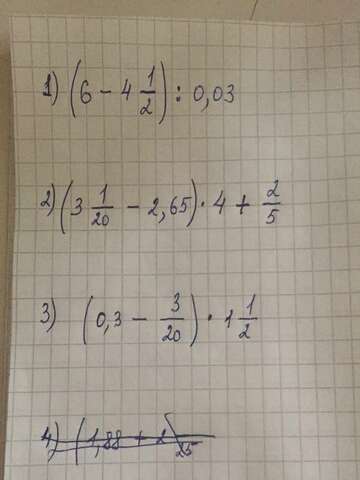 1) (6 - 4 1/2) : 0,03
2) (3 1/20 - 2,65) · 4 + 2/5
3) (0,3 - 3/20) · 1 1/2
4) (1,88 + 2 /25